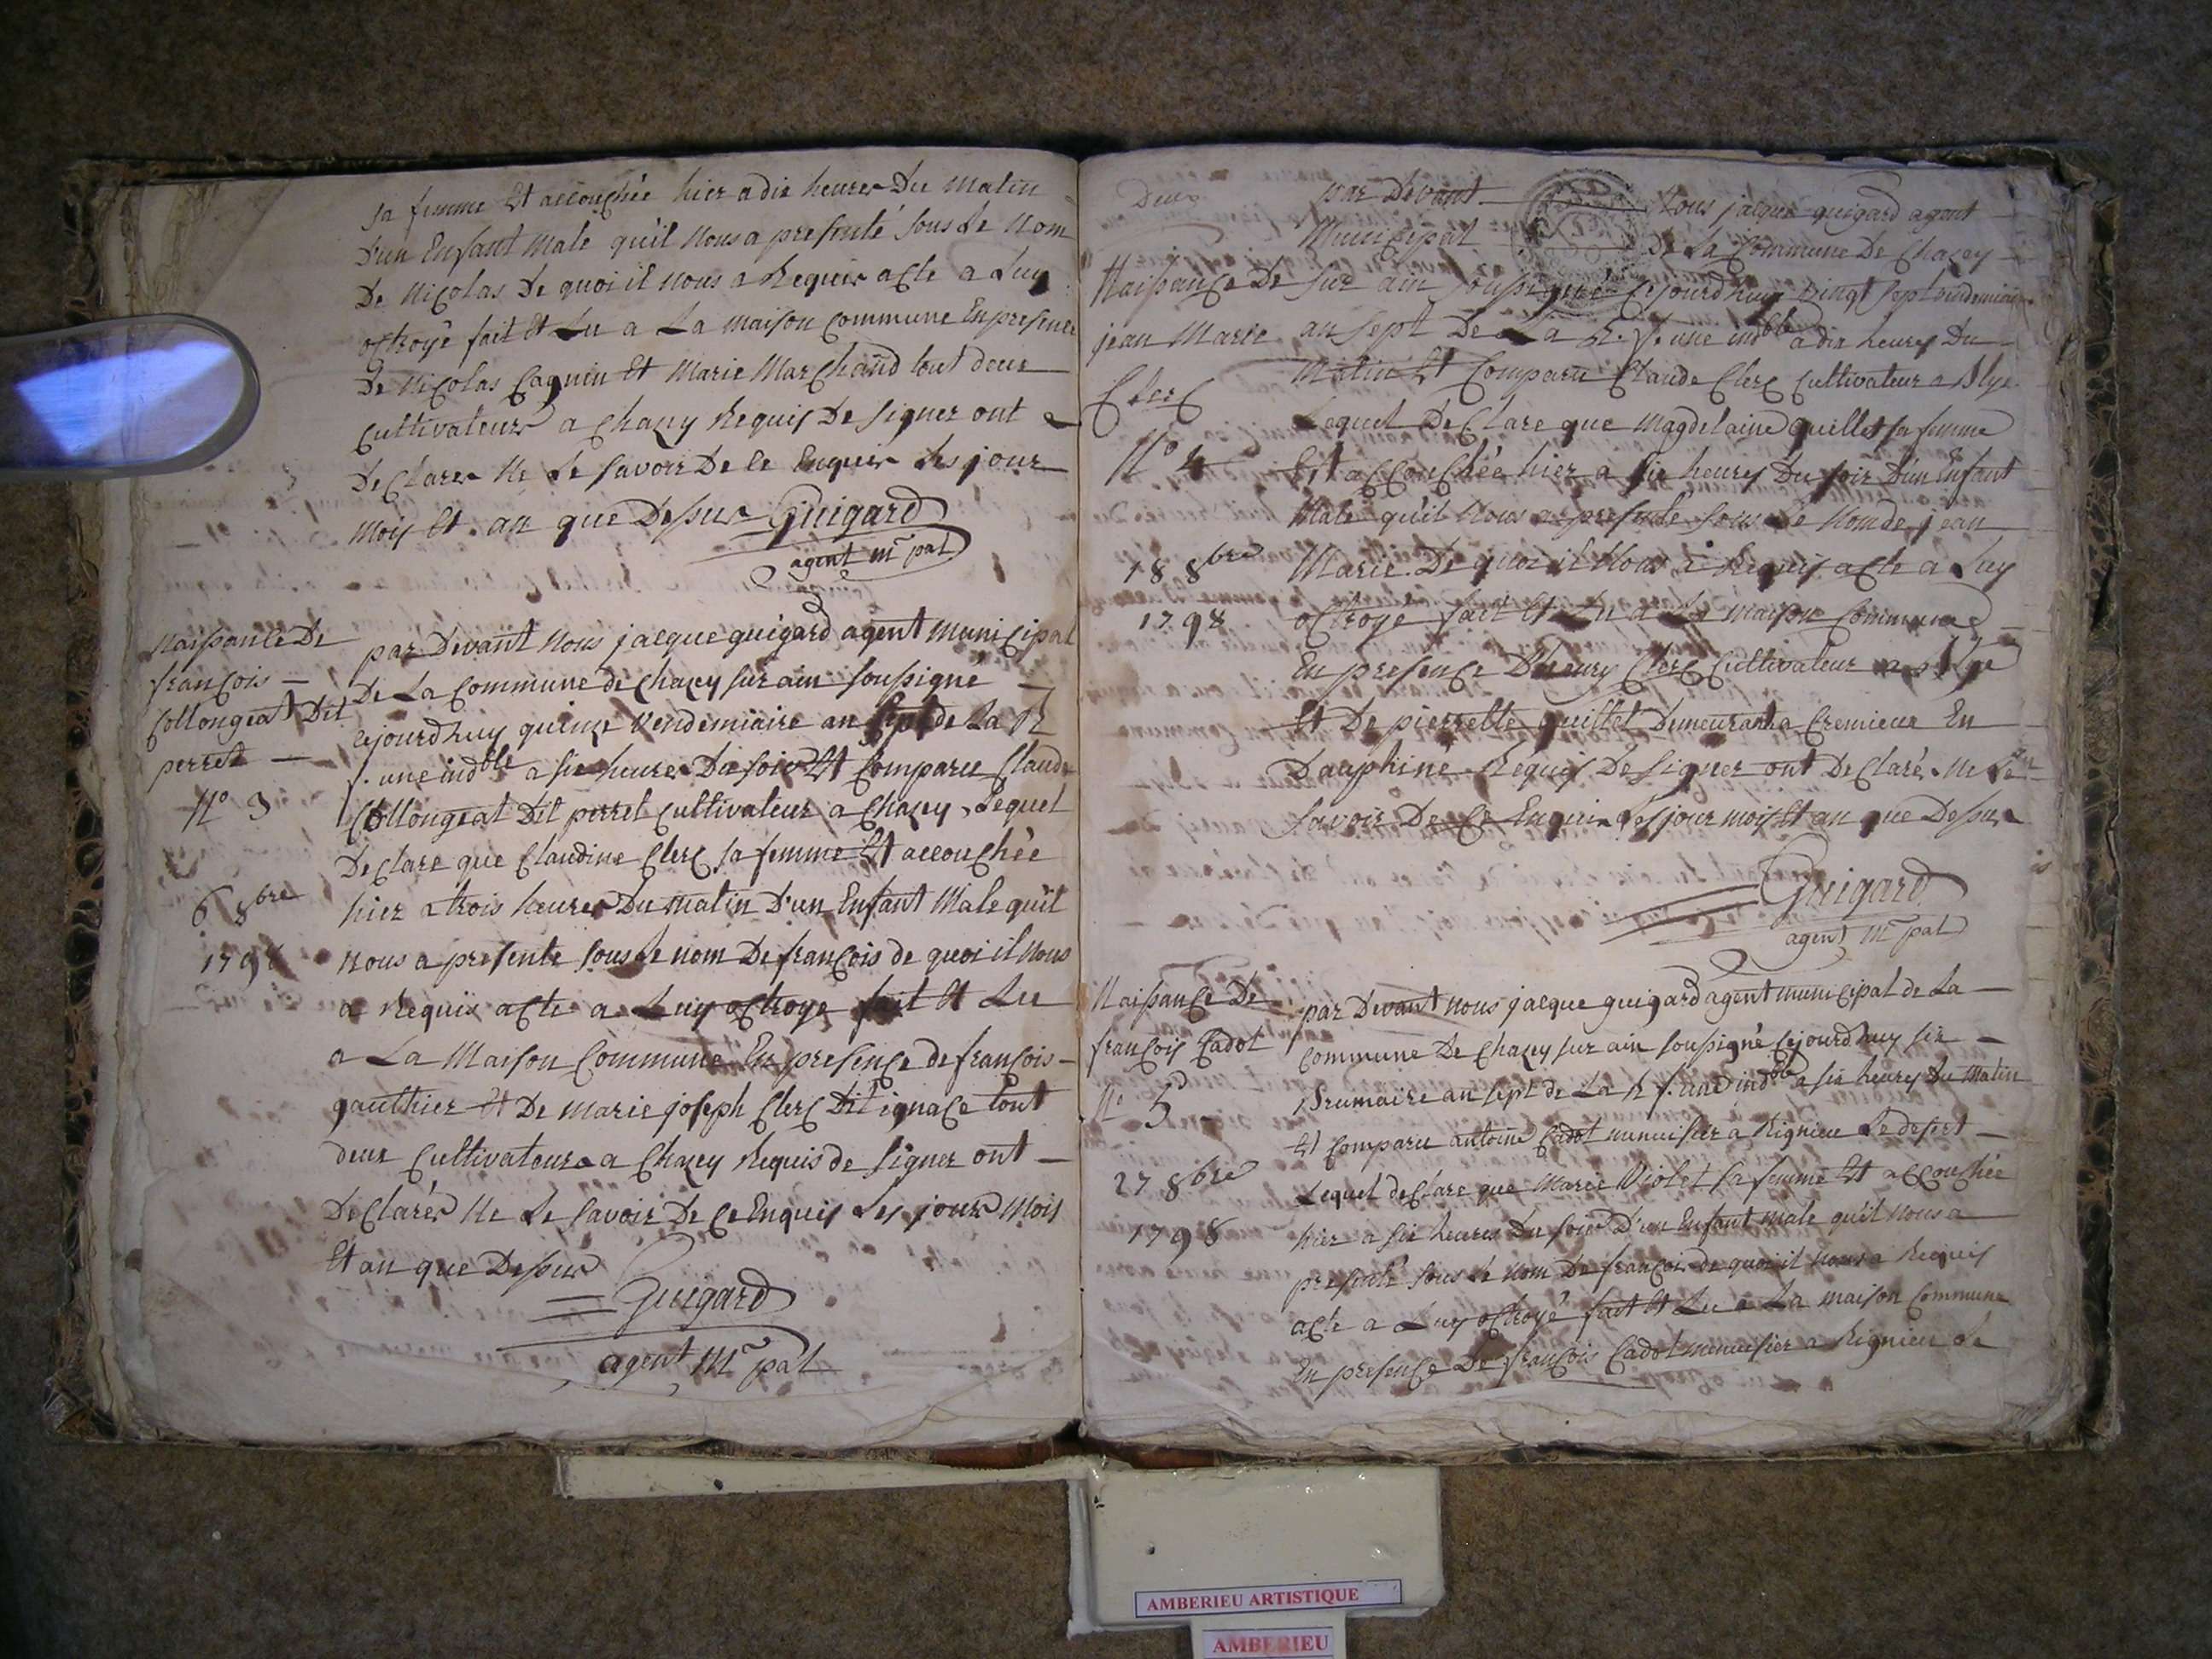 sa femme Et accouchée hier a dix heures Du Matin
D'un Enfant Male qu'il Nous a presenté sous Le Nom
De Nicolas De quoi il nous a Requis acte a Luy
octroyé fait Et Lu a La maison Commune En presence
De Nicolas Cagnin Et Marie Marchand tout deux
Cultivateurs a Chazey Requis De signer ont
Declarer Ne Le savoir De ce Enquis Les jour
Moy Et an que Dessus Guigard
agent M.pal
Naissance De
françois
Collongeat Dit
perret
N° 3
6 8bre
1798
par Devant Nous jacque guigard agent municipal
De La Commune de Chazey sur ain soussigné
Cejourdhuy quinze Vendemiaire an sept de La R
f. une indble a six heures Du soir Et Comparu Claude
Collongeat Dit perret Cultivateur a Chazey Lequel
Declare que Claudine Clerc sa femme Et accouchée
hier a trois heures Du matin D'un Enfant Male qu'il
Nous a presenté sous Le nom De françois de quoi il Nous
a Requis acte a Luy octroye fait Et Lu
a La Maison Commune En presence de françois
gauthier Et De marie joseph Clerc Dit ignace tout
deux Cultivateurs a Chazey Requis de signer ont
Declarés Ne Le savoir De Ce Enquis Les jours Mois
Et an que Dessus
Guigard
agent M.pal
Deux
Naissance De
jean Marie
Clerc
N° 4
18 8bre
1798
par Devant Nous jacque guigard agent
Municipal De La Commune De Chazey
sur ain soussigné Cejourdhuy vingt sept vendemiaire
an sept De La R. f. une indble a dix heures Du
Matin Et Comparu Claude Clerc Cultivateur a Blye
Lequel Declare que Magdelaine quillet sa femme
Est accouchée hier a six heures Du soir D'un Enfant
Male qu'il Nous a presenté sous Le Nom de jean
Marie De quoi il Nous a Requis acte a Luy
octroye fait Et Lu a La maison Commune
En presence D'henry Clerc Cultivateur a Blye
Et De pierrette quillet Demeurant a Cremieux En
Dauphiné Requis De signer ont Declaré Ne Le
savoir De Ce Enquis Les jour mois Et an que Dessus
Guigard
agent M.pal
Naissance De
françois Cadot
N° 5
27 8bre
1798
par Devant nous jacque guigard agent municipal de La
Commune De Chazey sur ain soussigné Cejourdhuy six
Brumaire an sept de La R f. une indble a six heures Du Matin
Et Comparu antoine Cadot menuisier a Rignieu Le desert
Lequel declare que Marie Violet sa femme Et accouchée
hier a six heures Du soir D'un Enfant male qu'il Nous a
presenté sous Le nom De françois de quoi il nous a Requis
acte a Luy octroyé fait Et Lu a La maison Commune
En presence De françois Cadot menuisier a Rignieu Le
AMBERIEU ARTISTIQUE
AMBERIEU